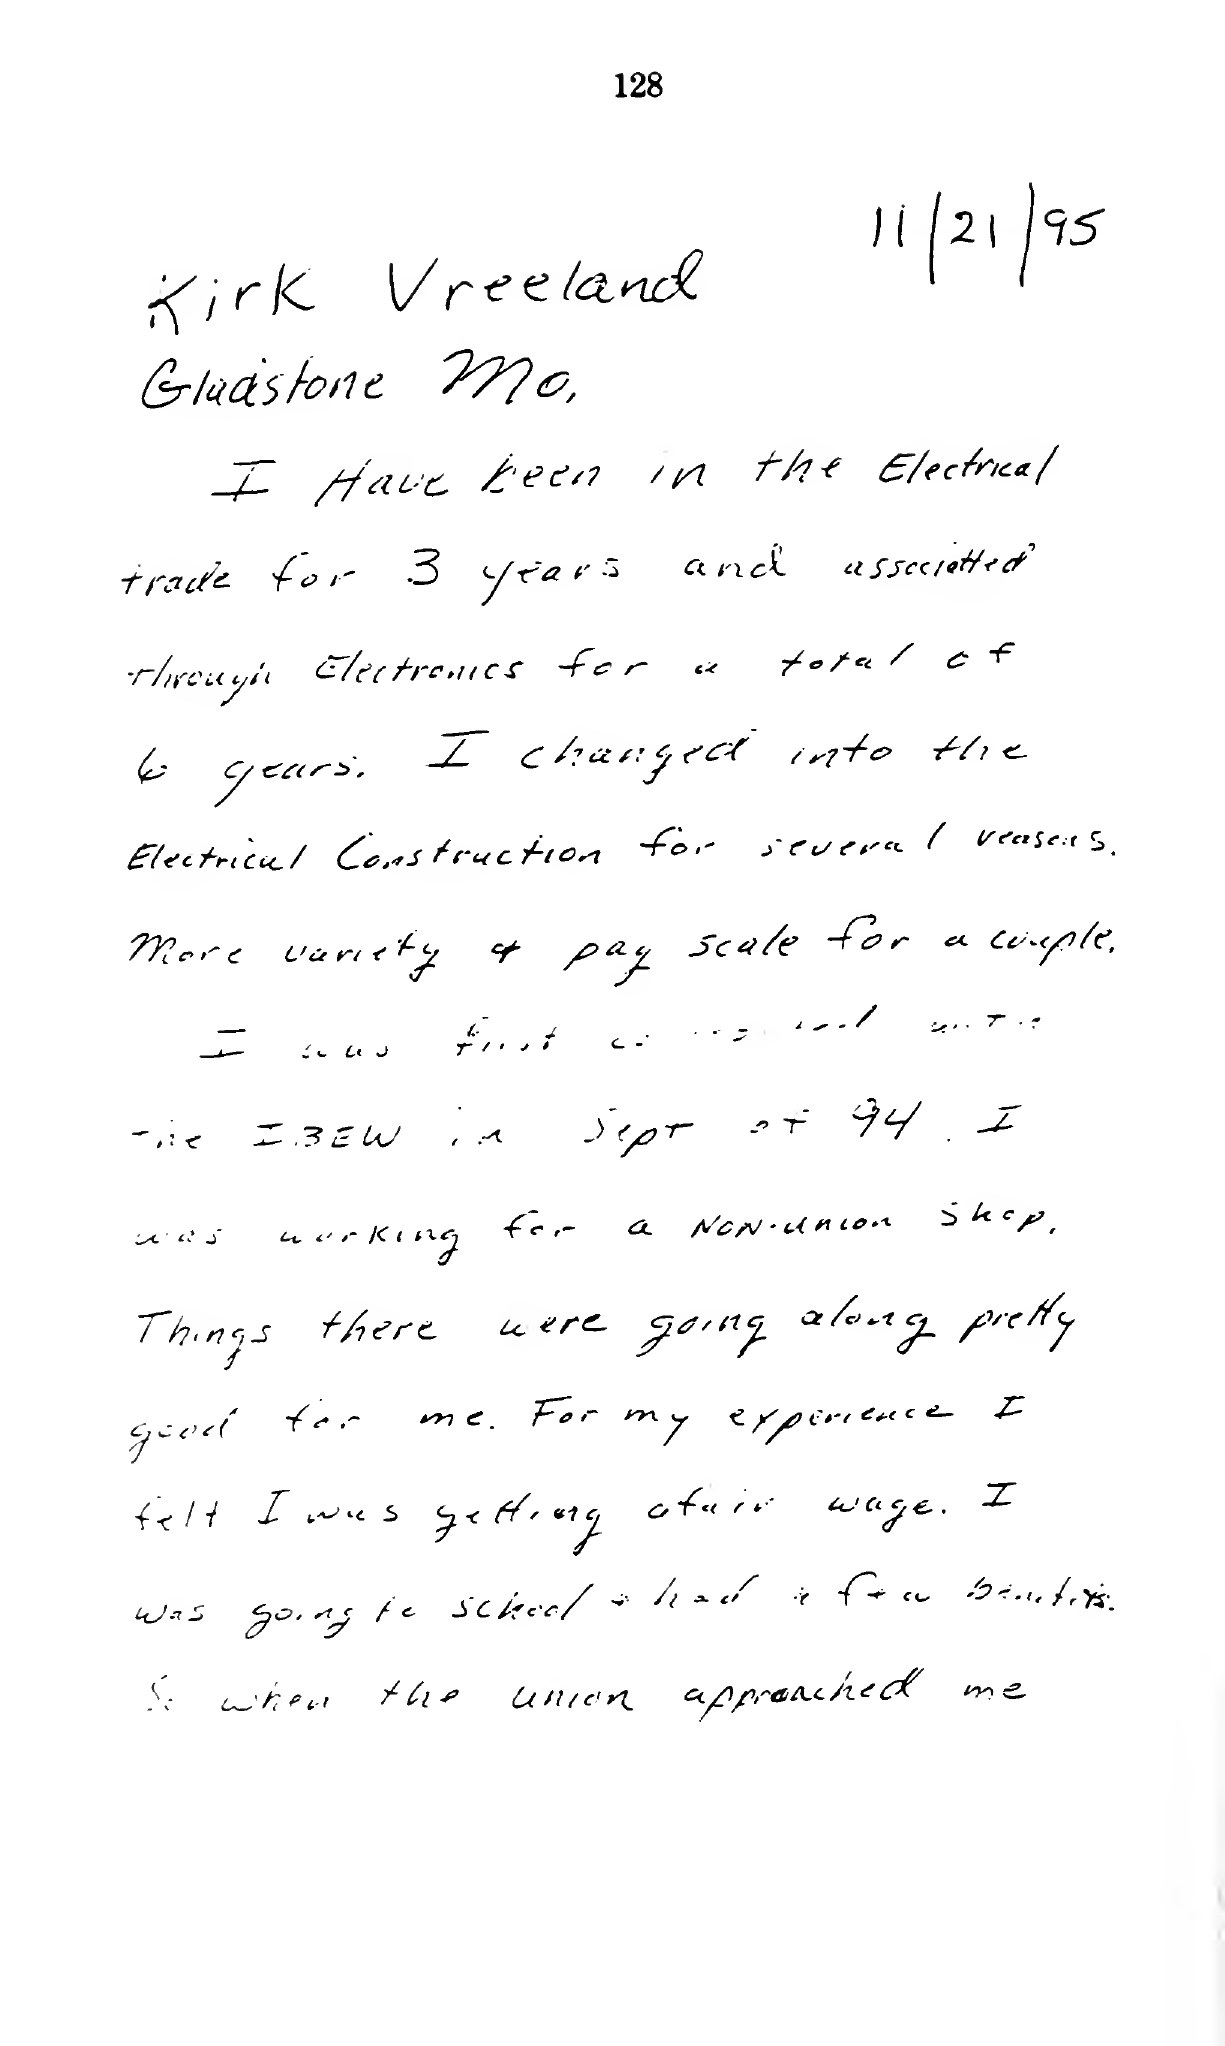 128
11/21/95
Kirk Vreeland
Gladstone Mo.
I Have been in the Electrical
trade for 3 years and associatted
through Electronics for a total of
6 years. I changed into the
Electrical Construction for several reasons.
More variety & pay scale for a couple.
I was first
the IBEW in Sept of 94. I
was working for a NON-union shop.
Things there were going along pretty
good for me. For my experience I
felt I was getting a fair wage. I
was going to school & had a few benefits.
So when the union approached me